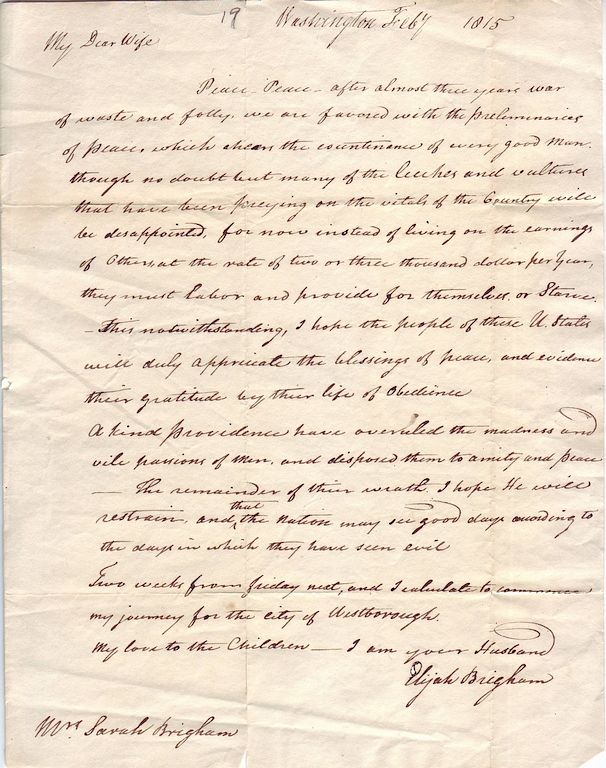 19
Washington Feby 1815
My Dear Wife
Peace - Peace - after almost three years war
of waste and folly, we are favored with the preliminaries
of peace, which chears the countinance of every good man.
though no doubt but many of the Leeches and vultures
that have been preying on the vitals of the Country will
be desappointed, for now instead of living on the earnings
of Others, at the rate of two or three thousand dollar per Year,
they must Labor and provide for themselves, or Starve.
- This notwithstanding, I hope the people of these U. States
will duly appricate the blessings of peace, and evidence
their gratitude by their life of Obedience
A kind Providence have overuled the madness and
vile passions of Men, and disposed them to amity and peace
— The remainder of their wrath, I hope He will
restrain, and that the Nation may see good days according to
the days in which they have seen evil
Two weeks from friday next, and I calculate to commence
my journey for the city of Westborough.
My love to the Children — I am your Husband
Elijah Brigham
Mrs Sarah Brigham